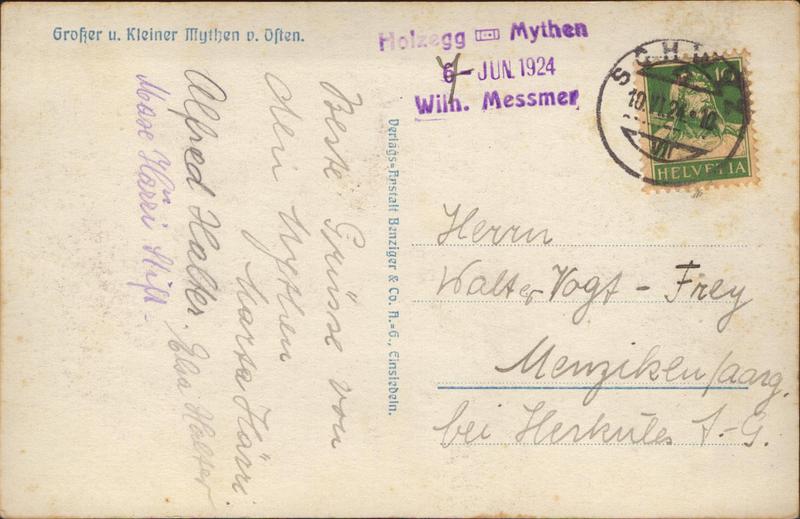 Großer u. Kleiner Mythen v. Osten.
Holzegg Mythen
6 - JUN. 1924
Wilh. Messmer
SCHLO
10. VI. 24 - 10
VIII
10
HELVETIA
Beste Grüsse von
den Mythen
Marta Härri
Alfred Halter. Elsa Halter
Härri
Verlags-Anstalt Benziger & Co. A.=G., Einsiedeln.
Herrn
Walter Vogt - Frey
Menziken/aarg.
bei Herkules A.-G.